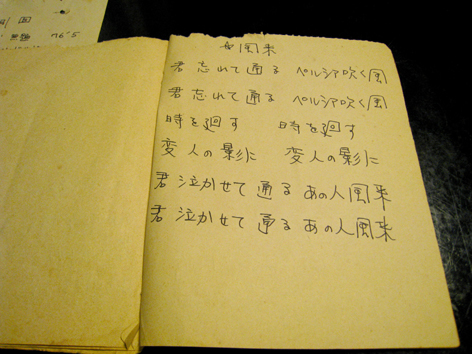 風来
君忘れて通る ペルシア吹く風
君忘れて通る ペルシア吹く風
時を廻す 時を廻す
変人の影に 変人の影に
君泣かせて通る あの人風来
君泣かせて通る あの人風来